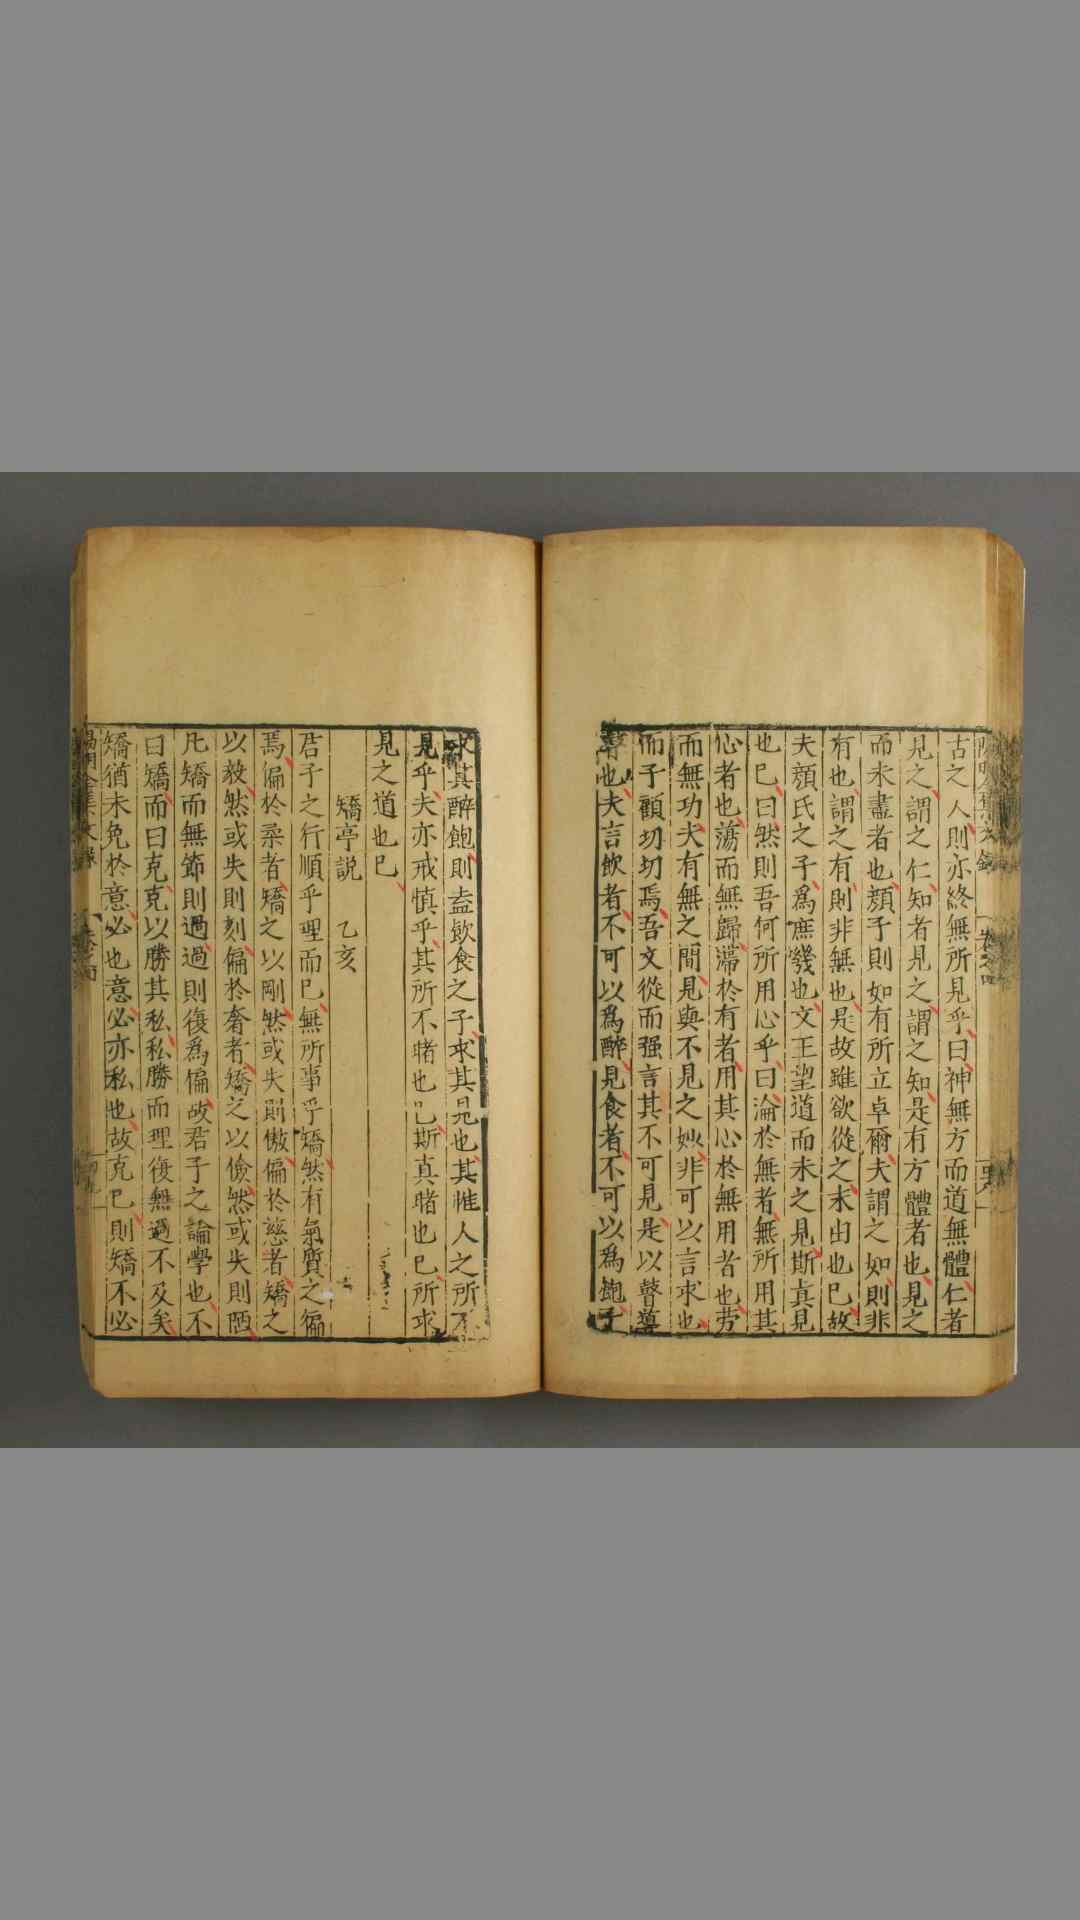 古之人則亦終無所見乎曰神無方而道無體仁者
見之謂之仁知者見之謂之知是有方體者也見之
而未盡者也顔子則如有所立卓爾夫謂之如則非
有也謂之有則非無也是故雖欲從之末由也巳故
夫顔氏之子爲庶幾也文王望道而未之見斯真見
也巳曰然則吾何所用心乎曰淪於無者無所用其
心者也蕩而無歸滯於有者用其心於無用者也労
而無功夫有無之間見與不見之妙非可以言求也
而子顧切切焉吾文從而强言其不可見是以瞽導
瞽也夫言飲者不可以爲醉見食者不可以爲飽子
求其醉飽則盍飲食之子求其見也其惟人之所不
見乎夫亦戒慎乎其所不睹也巳斯真睹也巳所求
見之道也巳
矯亭説 乙亥
君子之行順乎理而巳無所事乎矯然有氣質之偏
焉偏於柔者矯之以剛然或失則傲偏於慈者矯之
以毅然或失則刻偏於奢者矯之以儉然或失則陋
凡矯而無節則過過則復爲偏故君子之論學也不
曰矯而曰克克以勝其私私勝而理復無過不及矣
矯猶未免於意必也意必亦私也故克巳則矯不必
陽明全集文錄
卷之四